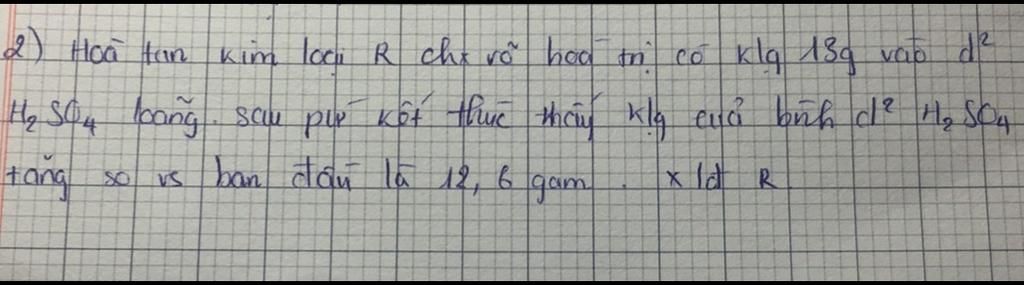 2) Hoà tan kim loại R chx rõ hoá trị có klg 13g vào d²
H₂SO₄ loãng. sau pư kết thúc thấy klg của bình d² H₂SO₄
tăng so vs ban đầu là 12,6 gam. xđ R